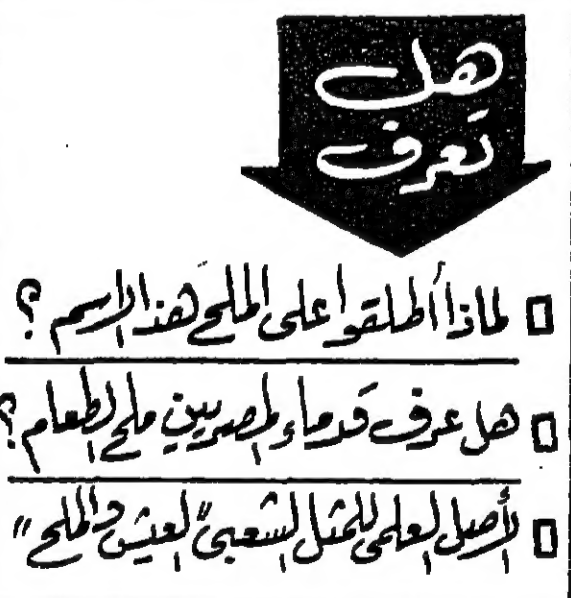 هل
تعرف
لماذا أطلقوا على الملح هذا الاسم ؟
هل عرف قدماء المصريين ملح الطعام ؟
الأصل العلمى للمثل الشعبى "العيش والملح"